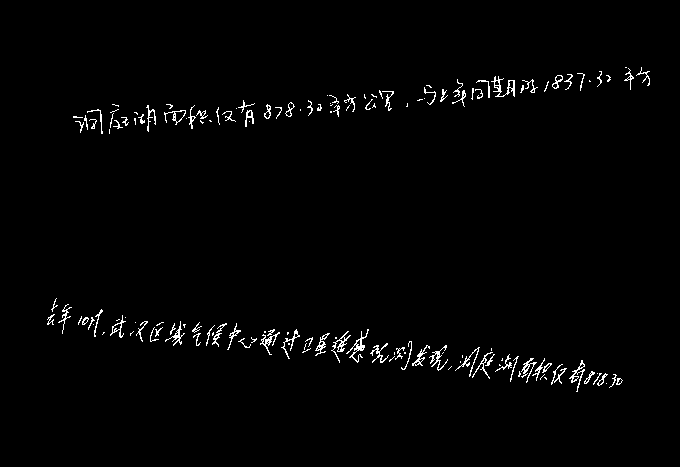 洞庭湖面积仅有878.30平方公里，与上年同期的1837.32平方
去年10月，武汉区域气候中心通过卫星遥感观测发现，洞庭湖面积仅有878.30